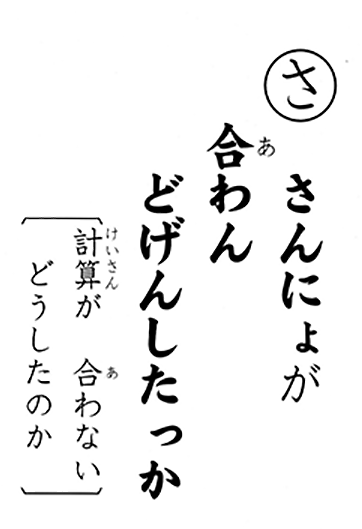 さ
さんにょが
合わん
あ
どげんしたっか
計算が 合わない
けいさん
あ
どうしたのか